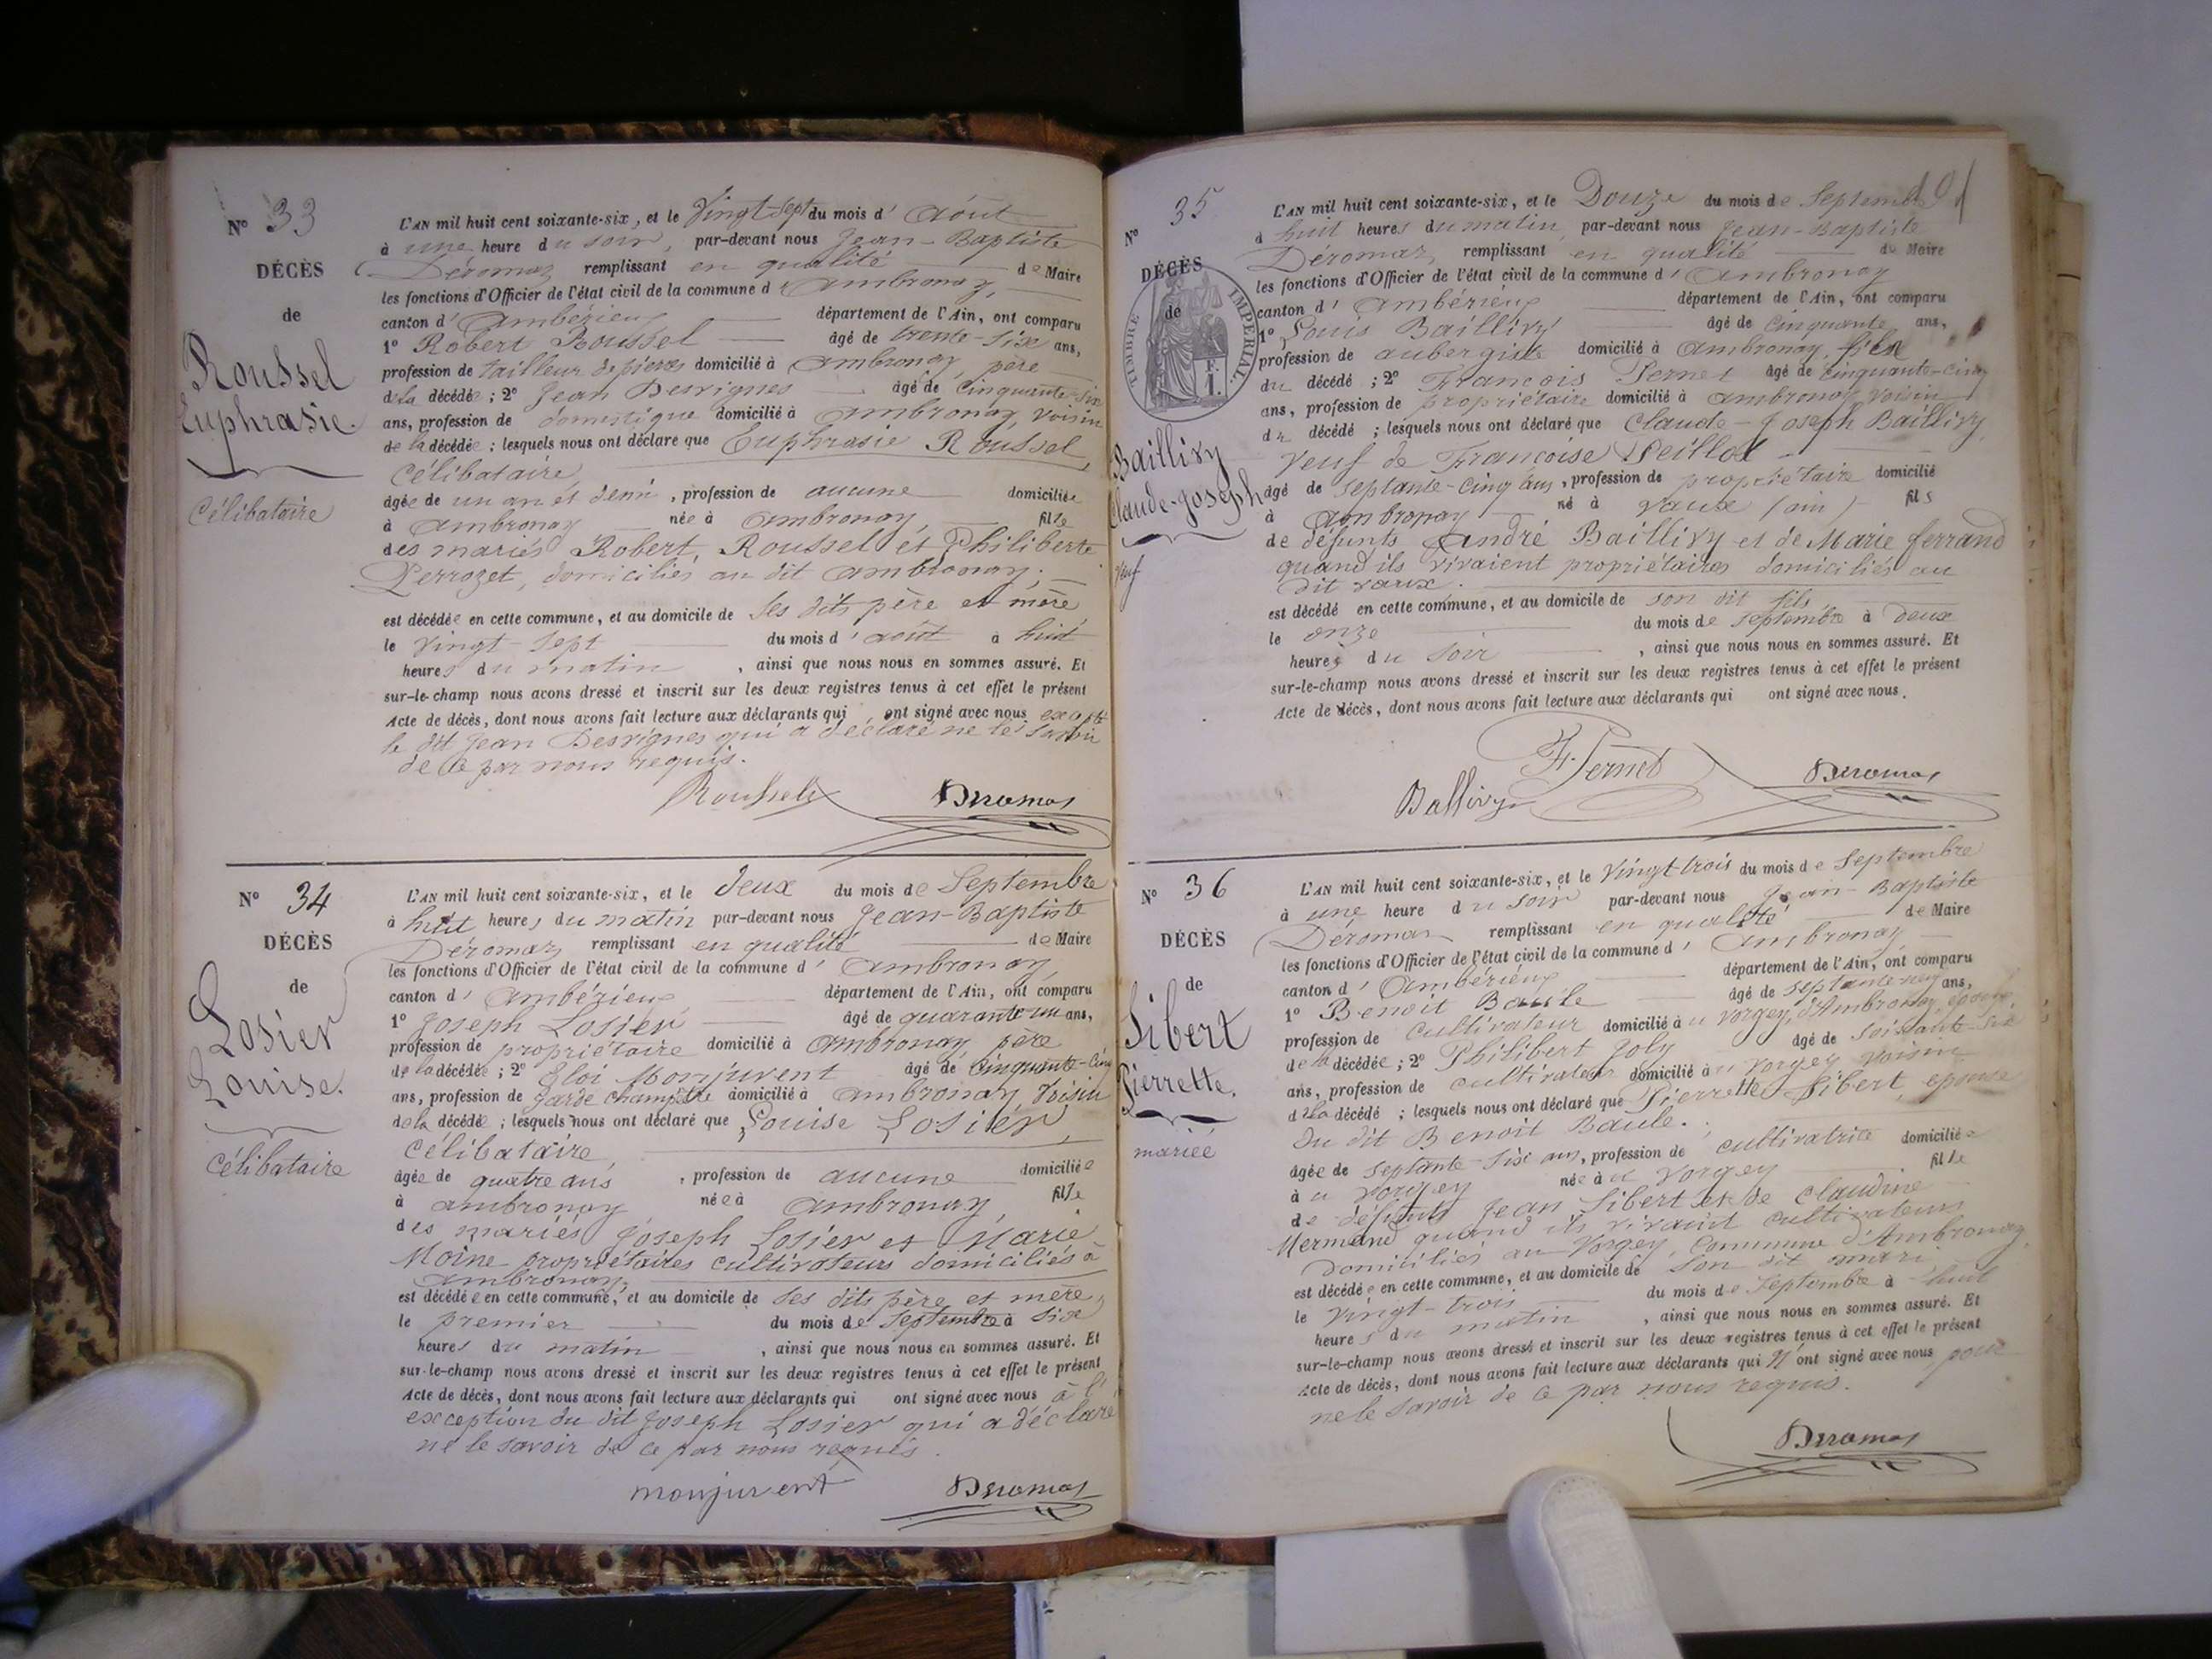 N° 33
DÉCÈS
de
Roussel
Euphrasie.
Célibataire
L'AN mil huit cent soixante-six, et le Vingt-Sept du mois d'Août
à une heure du soir, par-devant nous Jean-Baptiste
Déromas, remplissant en qualité de Maire
les fonctions d'Officier de l'état civil de la commune d'Ambronay,
canton d'Ambérieux département de l'Ain, ont comparu
1° Robert Roussel âgé de trente-six ans,
profession de tailleur de pierres domicilié à Ambronay, père
de la décédée ; 2° Jean Desvignes âgé de Cinquante-six
ans, profession de domestique domicilié à Ambronay, voisin
de la décédée ; lesquels nous ont déclaré que Euphrasie Roussel,
Célibataire,
âgée de un an et demi, profession de aucune domiciliée
à Ambronay née à Ambronay, fille
des mariés Robert, Roussel et Philiberte
Perrozet, domiciliés au dit Ambronay;
est décédée en cette commune, et au domicile de ses dits père et mère
le vingt-sept du mois d'août à huit
heures du matin, ainsi que nous nous en sommes assuré. Et
sur-le-champ nous avons dressé et inscrit sur les deux registres tenus à cet effet le présent
Acte de décès, dont nous avons fait lecture aux déclarants qui ont signé avec nous excepté
le dit Jean Desvignes qui a déclaré ne le savoir
de ce par nous requis.
Deromas
N° 34
DÉCÈS
de
Losier
Louise.
Célibataire
L'AN mil huit cent soixante-six, et le deux du mois de Septembre
à huit heures du matin par-devant nous Jean-Baptiste
Déromas remplissant en qualité de Maire
les fonctions d'Officier de l'état civil de la commune d'Ambronay
canton d'Ambérieux département de l'Ain, ont comparu
1° Joseph Losier âgé de quarante un ans,
profession de propriétaire domicilié à Ambronay père
de la décédée ; 2° Eloi Monjuvent âgé de Cinquante-Cinq
ans, profession de garde champêtre domicilié à Ambronay Voisin
de la décédée ; lesquels nous ont déclaré que Louise Losier,
Célibataire,
âgée de quatre ans, profession de aucune domiciliée
à ambronay née à Ambronay, fille
des mariés Joseph Losier et Marie
Moine propriétaires cultivateurs domiciliés à
Ambronay;
est décédée en cette commune, et au domicile de ses dits père et mère,
le premier du mois de Septembre à Six
heures du matin, ainsi que nous nous en sommes assuré. Et
sur-le-champ nous avons dressé et inscrit sur les deux registres tenus à cet effet le présent
Acte de décès, dont nous avons fait lecture aux déclarants qui ont signé avec nous à l'
exception du dit Joseph Losier qui a déclaré
ne le savoir de ce par nous requis.
monjuvent Deromas
N° 35
DÉCÈS
de
TIMBRE IMPERIAL
F. 1.
Baillivy
Claude-Joseph
Veuf
L'AN mil huit cent soixante-six, et le Douze du mois de Septembre
à huit heures du matin, par-devant nous Jean-Baptiste
Déromas, remplissant en qualité de Maire
les fonctions d'Officier de l'état civil de la commune d'Ambronay
canton d'Ambérieux département de l'Ain, ont comparu
1° Louis Baillivy âgé de Cinquante ans,
profession de aubergiste domicilié à Ambronay, fils
du décédé ; 2° François Pernet âgé de cinquante-cinq
ans, profession de propriétaire domicilié à Ambronay voisin
du décédé ; lesquels nous ont déclaré que Claude-Joseph Baillivy,
veuf de Françoise Peillod
âgé de septante-cinq ans, profession de propriétaire domicilié
à Ambronay né à Vaux (ain) fils
de défunts André Baillivy et de Marie ferrand
quand ils vivaient propriétaires domiciliés au
dit vaux.
est décédé en cette commune, et au domicile de son dit fils
le onze du mois de septembre à Deux
heures du soir, ainsi que nous nous en sommes assuré. Et
sur-le-champ nous avons dressé et inscrit sur les deux registres tenus à cet effet le présent
Acte de décès, dont nous avons fait lecture aux déclarants qui ont signé avec nous.
F. Pernet
Ballivy Deromas
N° 36
DÉCÈS
de
Sibert
Pierrette.
mariée
L'AN mil huit cent soixante-six, et le Vingt-trois du mois de Septembre
à une heure du soir par-devant nous Jean-Baptiste
Déromas remplissant en qualité de Maire
les fonctions d'Officier de l'état civil de la commune d'Ambronay
canton d'Ambérieux département de l'Ain, ont comparu
1° Benoit Baule âgé de septante neuf ans,
profession de cultivateur domicilié au Vorgey, d'Ambronay, époux
de la décédée ; 2° Philibert Joly âgé de soixante-six
ans, profession de cultivateur domicilié au Vorgey voisin
de la décédé ; lesquels nous ont déclaré que Pierrette Sibert, épouse
du dit Benoit Baule.
âgée de septante-six ans, profession de cultivatrice domiciliée
à u Vorgey née à u Vorgey fille
de défunts Jean Sibert et de Claudine
Mermand quand ils vivaient cultivateurs
domiciliés au Vorgey, commune d'Ambronay,
est décédée en cette commune, et au domicile de son dit mari
le vingt-trois du mois de Septembre à huit
heures du matin, ainsi que nous nous en sommes assuré. Et
sur-le-champ nous avons dressé et inscrit sur les deux registres tenus à cet effet le présent
Acte de décès, dont nous avons fait lecture aux déclarants qui n'ont signé avec nous pour
ne le savoir de ce par nous requis.
Deromas